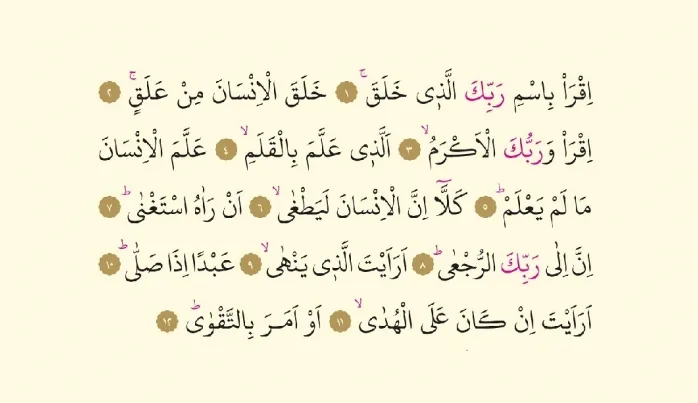 اِقْرَأْ بِاسْمِ رَبِّكَ الَّذ۪ى خَلَقَۚ ﴿١﴾ خَلَقَ الْاِنْسَانَ مِنْ عَلَقٍۚ ﴿٢﴾
اِقْرَأْ وَرَبُّكَ الْاَكْرَمُۙ ﴿٣﴾ اَلَّذ۪ى عَلَّمَ بِالْقَلَمِۙ ﴿٤﴾ عَلَّمَ الْاِنْسَانَ
مَا لَمْ يَعْلَمْۜ ﴿٥﴾ كَلَّٓا اِنَّ الْاِنْسَانَ لَيَطْغٰىۙ ﴿٦﴾ اَنْ رَاٰهُ اسْتَغْنٰىۜ ﴿٧﴾
اِنَّ اِلٰى رَبِّكَ الرُّجْعٰىۜ ﴿٨﴾ اَرَاَيْتَ الَّذ۪ى يَنْهٰىۙ ﴿٩﴾ عَبْدًا اِذَا صَلّٰىۜ ﴿١٠﴾
اَرَاَيْتَ اِنْ كَانَ عَلَى الْهُدٰىۙ ﴿١١﴾ اَوْ اَمَرَ بِالتَّقْوٰىۜ ﴿١٢﴾